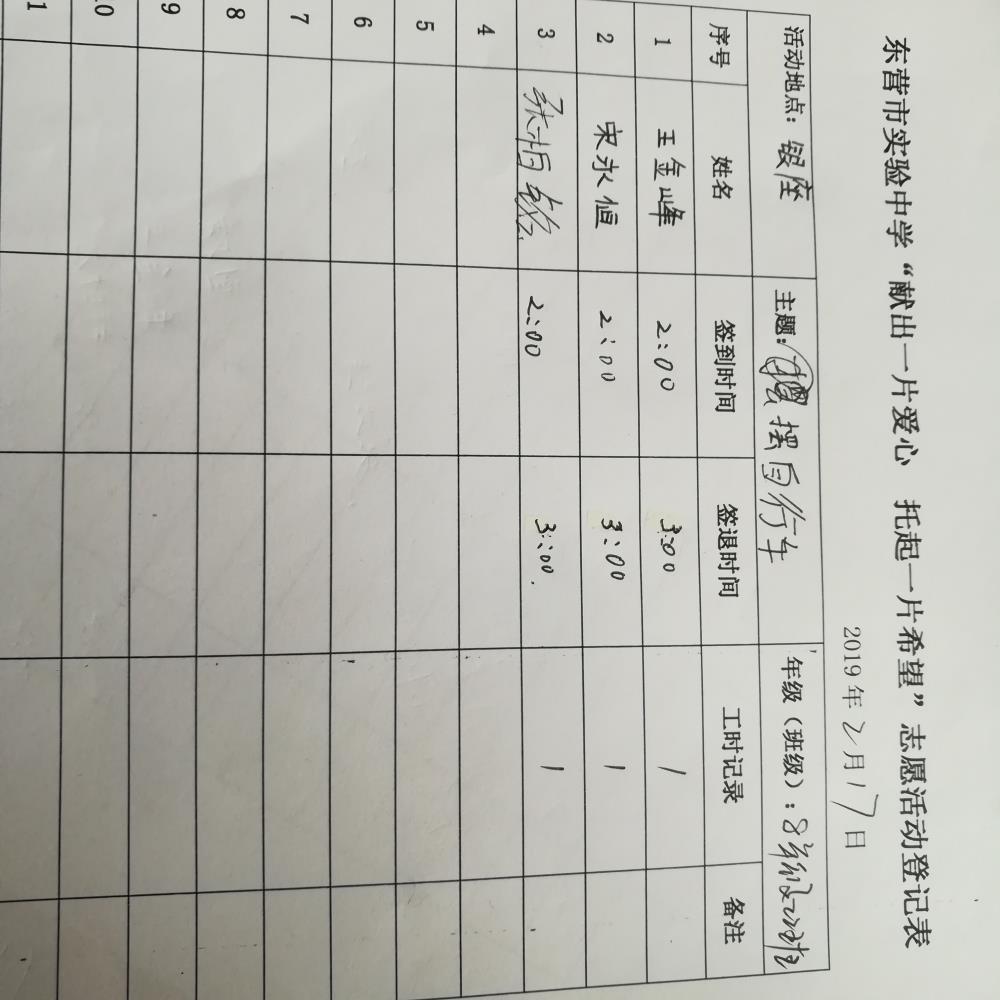 东营市实验中学“献出一片爱心 托起一片希望”志愿活动登记表
2019年2月17日
活动地点：银座 主题：摆自行车 年级（班级）：8年级20班
序号 姓名 签到时间 签退时间 工时记录 备注
1 王金峰 2:00 3:00 1
2 宋永恒 2:00 3:00 1
3 2:00 3:00 1
4
5
6
7
8
9
10
1